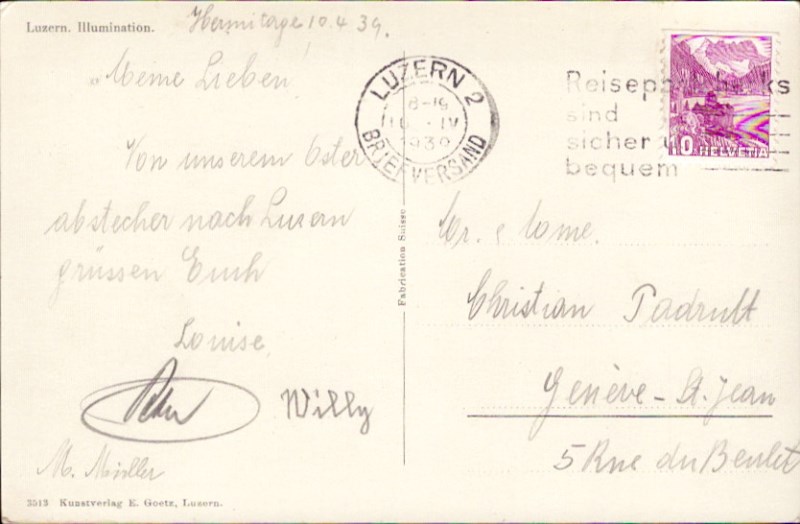 Luzern. Illumination.
Hermitage 10.4.39.
Meine Lieben
Von unserem Oster
abstecher nach Luzern
grüssen Euch
Louise
Willy
M. Müller
3513 Kunstverlag E. Goetz, Luzern.
Fabrication Suisse
LUZERN 2
8-19
10. IV
1939
BRIEFVERSAND
sind
sicher u
bequem
10 HELVETIA
Mr. & Mme.
Christian Padrutt
Genève - St. Jean
5 Rue du Beulet